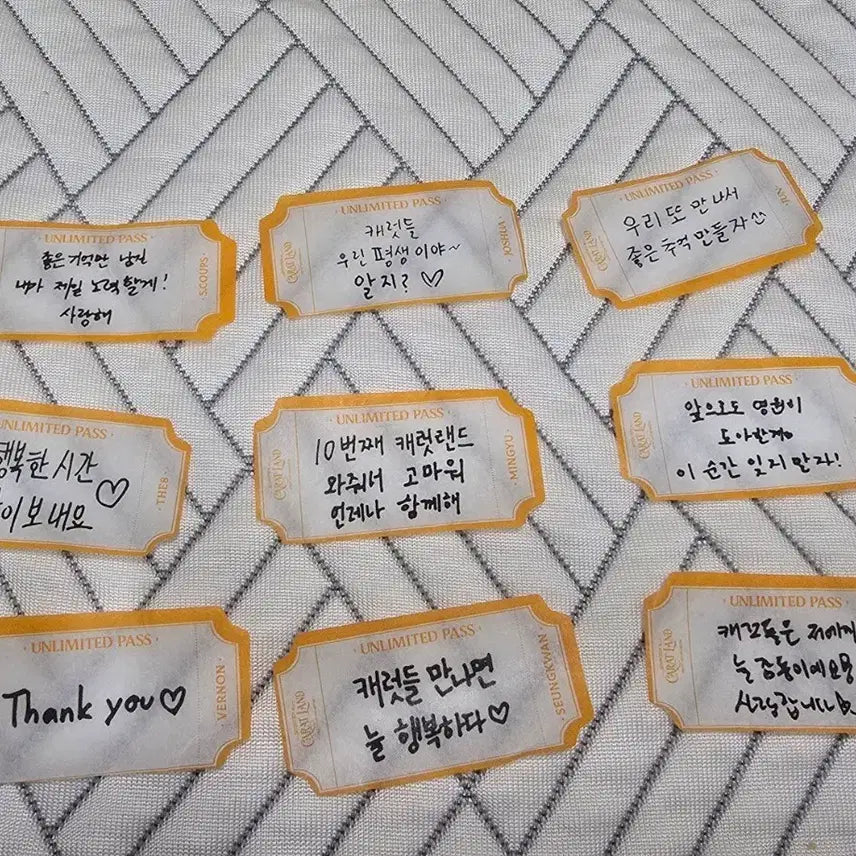 · UNLIMITED PASS ·
좋은 기억만 남긴
내가 제일 노력할게!
사랑해
S.COUPS
· UNLIMITED PASS ·
캐럿들
우린 평생이야~
알지? ♡
CARAT LAND
JOSHUA
· UNLIMITED PASS ·
우리 또 만나서
좋은 추억 만들자^^
CARAT LAND
JUN
UNLIMITED PASS ·
행복한 시간
이 보내요 ♡
THE8
· UNLIMITED PASS ·
10번째 캐럿랜드
와줘서 고마워
언제나 함께해
CARAT LAND
MINGYU
· UNLIMITED PASS ·
앞으로도 영원히
이 순간 잊지 말자!
CARAT LAND
· UNLIMITED PASS ·
Thank you ♡
VERNON
· UNLIMITED PASS ·
캐럿들 만나면
늘 행복하다 ♡
CARAT LAND
SEUNGKWAN
· UNLIMITED PASS
늘 감동이에요
사랑합니다
CARAT LAND